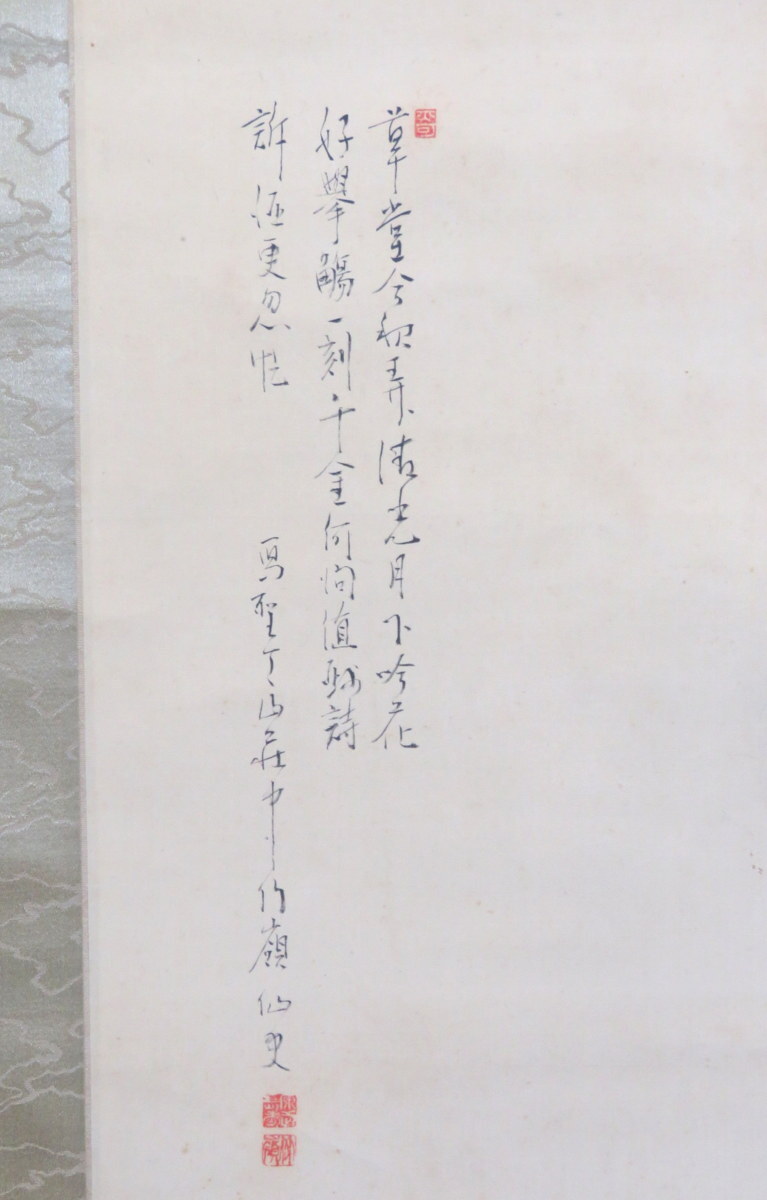 草堂今初弄清光月下吟花
好舉觴一刻千金何問值聯詩
評酒更忽忙
寫聖丁山莊中竹嶺仙史